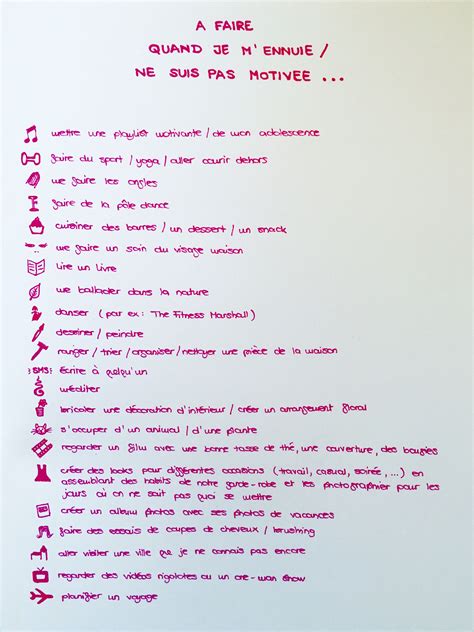 A FAIRE
QUAND JE M'ENNUIE /
NE SUIS PAS MOTIVEE ...
mettre une playlist motivante / de mon adolescence
faire du sport / yoga / aller courir dehors
me faire les ongles
faire de la pôle dance
cuisiner des barres / un dessert / un snack
me faire un soin du visage maison
lire un livre
me ballader dans la nature
danser (par ex: The Fitness Marshall)
dessiner / peindre
ranger / trier / organiser / nettoyer une pièce de la maison
SMS écrire à quelqu'un
méditer
bricoler une décoration d'intérieur / créer un arrangement floral
s'occuper d'un animal / d'une plante
regarder un film avec une bonne tasse de thé, une couverture, des bougies
créer des looks pour différentes occasions (travail, casual, soirée, ...) en
assemblant des habits de notre garde-robe et les photographier pour les
jours où on ne sait pas quoi se mettre
créer un album photos avec ses photos de vacances
faire des essais de coupes de cheveux / brushing
aller visiter une ville que je ne connais pas encore
regarder des vidéos rigolotes ou un one-man show
planifier un voyage